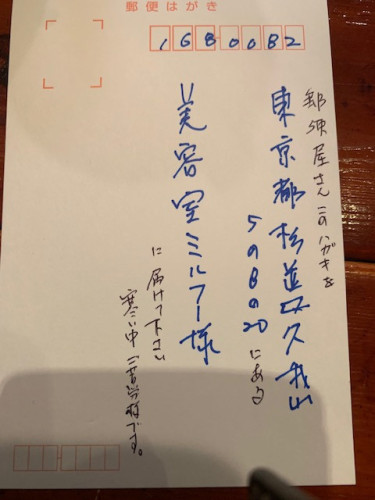 郵便はがき
1680082
郵便屋さんこのハガキを
東京都杉並区久我山
5の8の20にある
美容室ミルフー様
に届けて下さい
寒い中ご苦労様です。